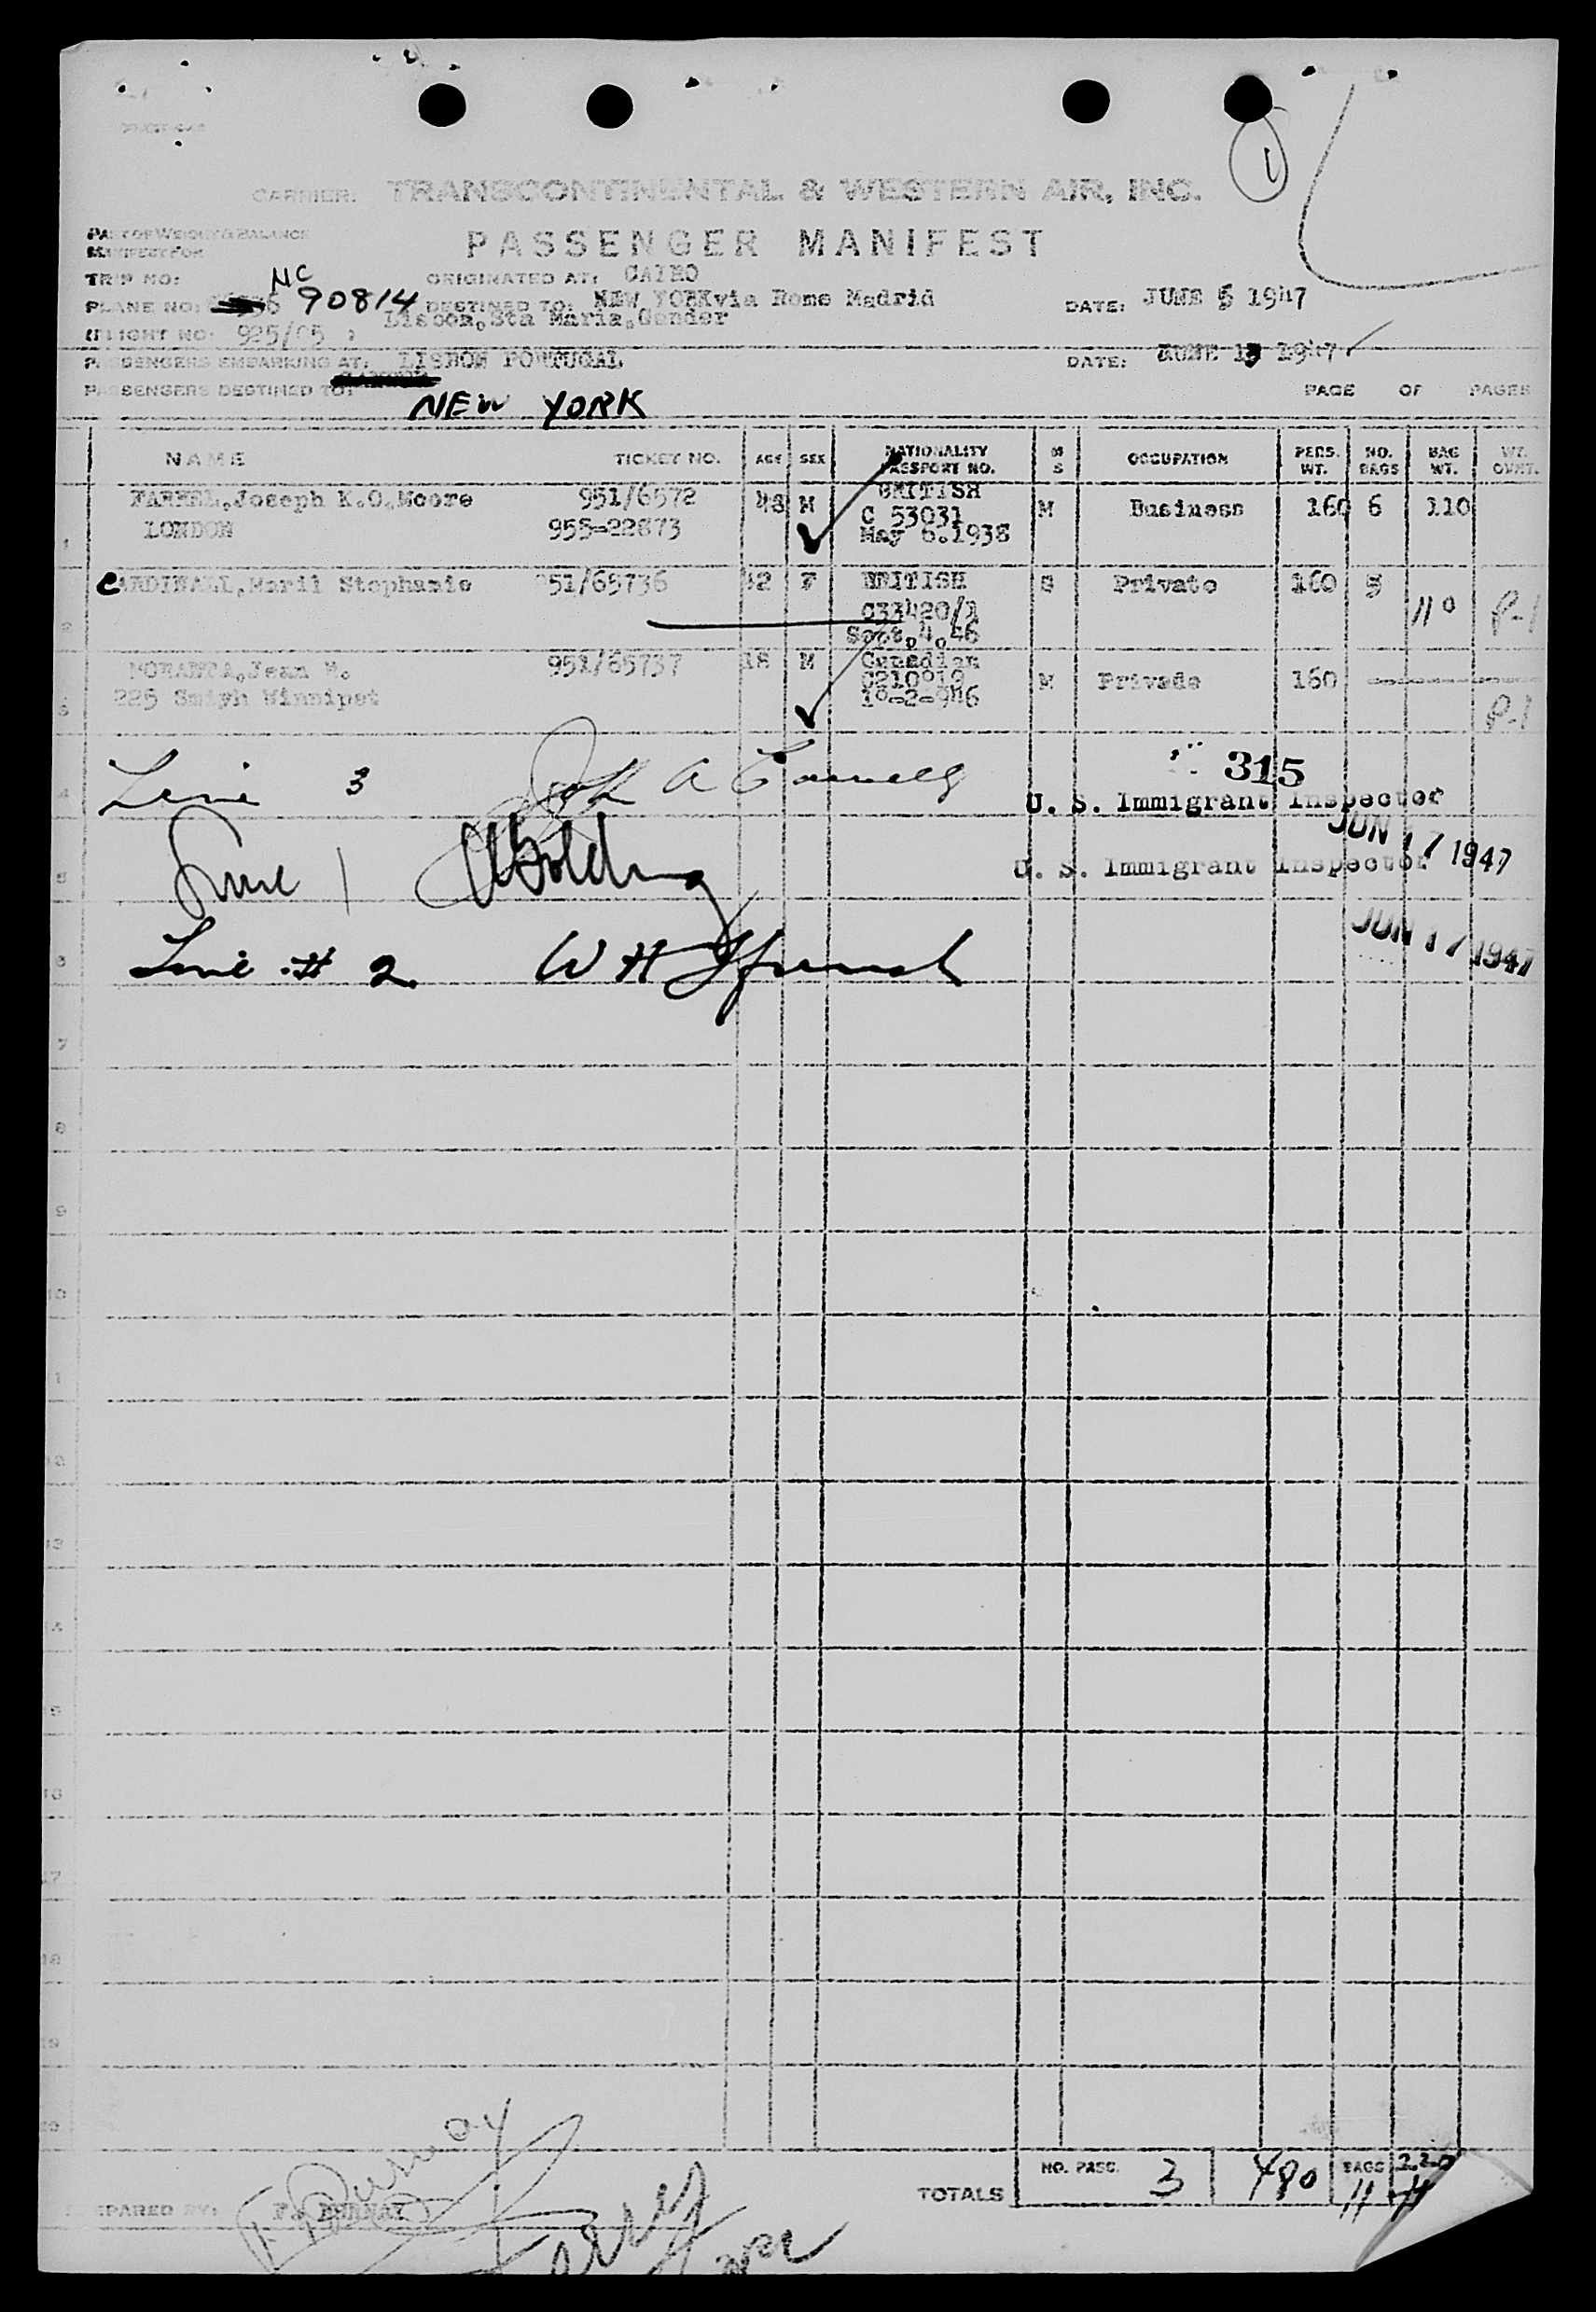 CARRIER: TRANSCONTINENTAL & WESTERN AIR, INC.
1
PART OF WEIGHT & BALANCE
MANIFEST FOR
PASSENGER MANIFEST
TRIP NO: NC ORIGINATED AT: CAIRO
PLANE NO: 90814 DESTINED TO: NEW YORK via Rome Madrid DATE: JUNE 5 1947
Lisboa, Sta Maria, Gander
FLIGHT NO: 925/05
PASSENGERS EMBARKING AT: LISBON PORTUGAL DATE: JUNE 13 1947
PASSENGERS DESTINED TO: NEW YORK
PAGE OF PAGES
NAME TICKET NO. AGE SEX NATIONALITY PASSPORT NO. M S OCCUPATION PERS. WT. NO. BAGS BAG WT. WT. OVHT.
FARREL, Joseph K.O. Moore 951/6572 48 M BRITISH M Business 160 6 110
LONDON 955-22873 C 53031
May 6.1938
1
CARDINALL, Maril Stephanie 51/65736 42 F BRITISH S Private 160 5 110 P-1
C33420/1
2 Sept. 4. 46
Jean M. 951/65737 18 M Canadian M Private 160
225 Smiyh Winnipet 10-2-946 P-1
3
315
Line 3
4 U. S. Immigrant Inspector
JUN 17 1947
Line 1 Golding U. S. Immigrant Inspector
5
JUN 17 1947
Line # 2. W H
6
7
8
9
10
12
13
14
15
16
17
18
19
20
PREPARED BY: TOTALS NO. PASS. 3 480 BAGS 11 220